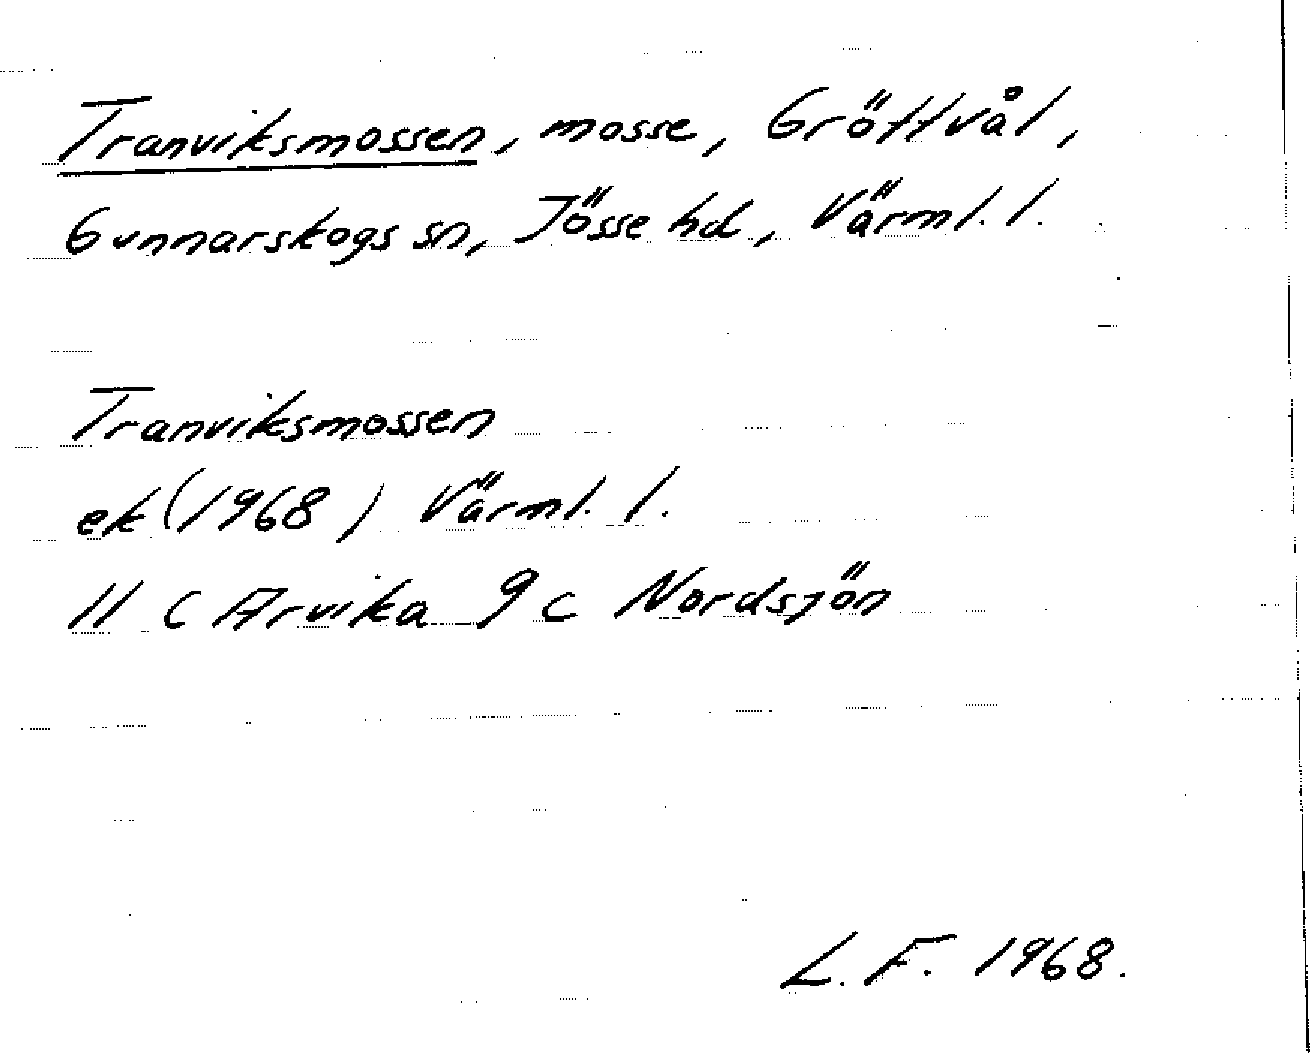 Tranviksmossen, mosse, Gröttvål,
Gunnarskogs sn, Jösse hd, Värml. l.
Tranviksmossen
ek (1968) Värml. l.
11 C Arvika 9 c Nordsjön
L. F. 1968.